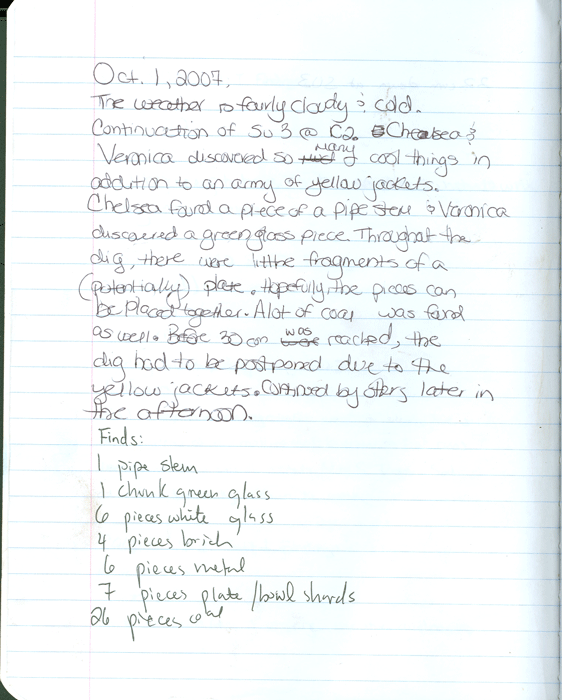 Oct. 1, 2007.
The weather is fairly cloudy & cold.
Continuation of Su 3 @ C2. Chealsea &
Veronica discovered so many cool things in
addition to an army of yellow jackets.
Chelsea found a piece of a pipe stem & Veronica
discovered a green glass piece. Throughout the
dig, there were little fragments of a
(potentially) plate. Hopefully the pieces can
be placed together. A lot of coal was found
as well. Before 30 cm was reached, the
dig had to be postponed due to the
yellow jackets. Continued by others later in
the afternoon.
Finds:
1 pipe stem
1 chunk green glass
6 pieces white glass
4 pieces brick
6 pieces metal
7 pieces plate/bowl shards
26 pieces coal